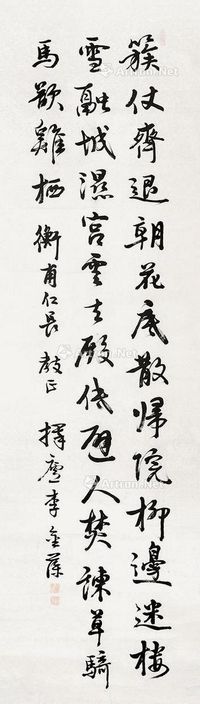 簇仗齊退朝花底散歸院柳邊迷樓
雪融城濕宮雲去殿低避人焚諫草騎
馬欲雞栖 衡甫仁長教正 擇廬李金藻